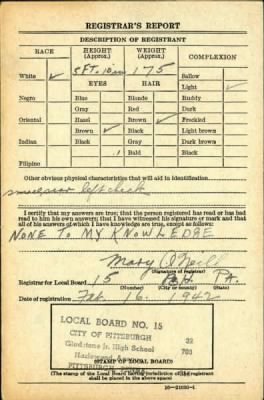 REGISTRAR'S REPORT
DESCRIPTION OF REGISTRANT
RACE HEIGHT (Approx.) WEIGHT (Approx.) COMPLEXION
5 FT. 10 in 175
White ✓ Sallow
EYES HAIR Light ✓
Negro Blue Blonde Ruddy
Gray Red Dark
Oriental Hazel Brown ✓ Freckled
Brown ✓ Black Light brown
Indian Black Gray Dark brown
Bald Black
Filipino
Other obvious physical characteristics that will aid in identification
scar left cheek
I certify that my answers are true; that the person registered has read or has had
read to him his own answers; that I have witnessed his signature or mark and that
all of his answers of which I have knowledge are true, except as follows:
NONE TO MY KNOWLEDGE
Mary O'Neill
(Signature of registrar)
Registrar for Local Board 15 PGH PA.
(Number) (City or county)
Date of registration Feb. 16 1942
LOCAL BOARD NO. 15
CITY OF PITTSBURGH 32
Gladstone Jr. High School 703
Hazelwood
PITTSBURGH
(STAMP OF LOCAL BOARD)
(The stamp of the Local Board having jurisdiction of the registrant
shall be placed in the above space)
16-21630-1